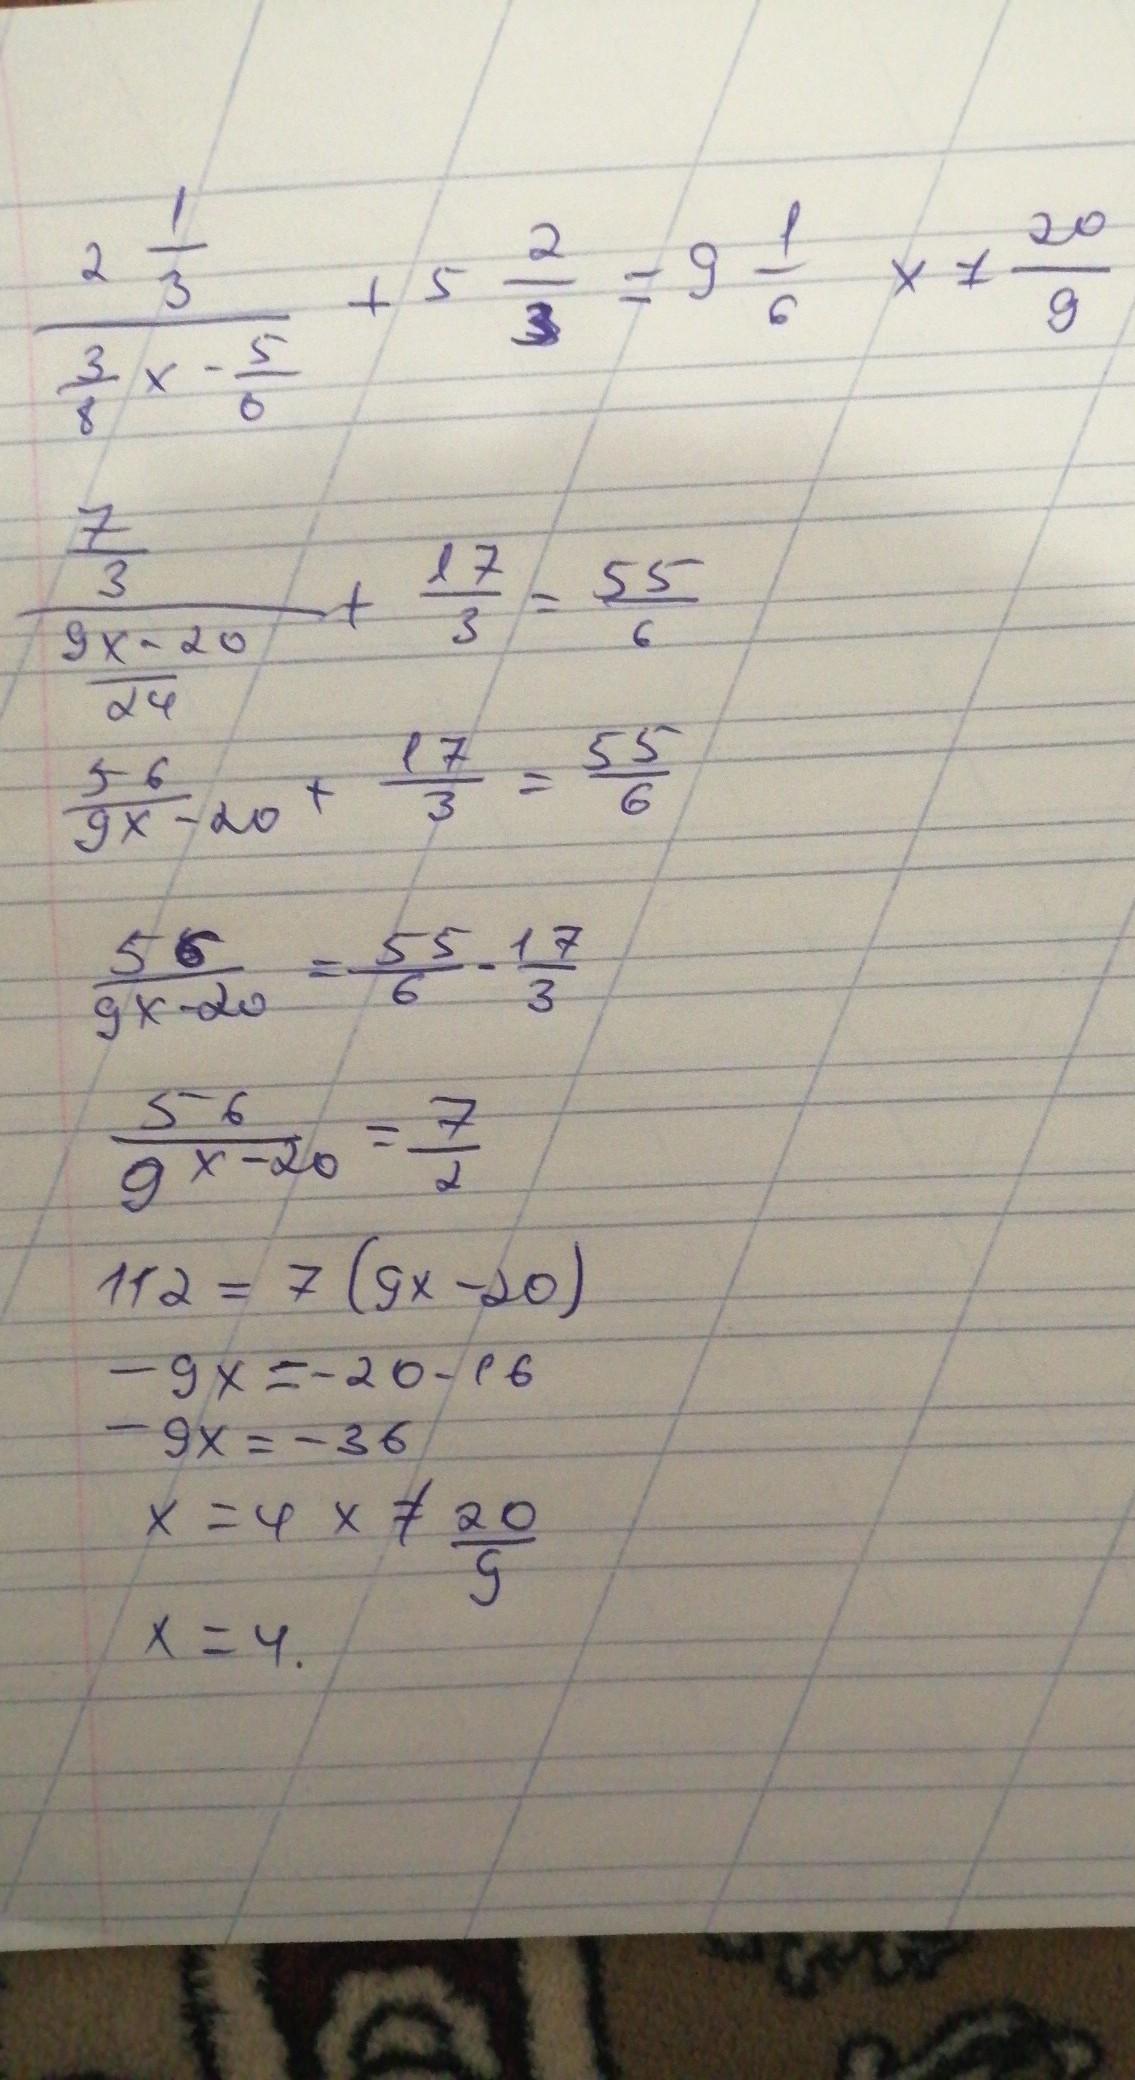 2 1/3 / (3/8 x - 5/0) + 5 2/3 = 9 1/6 x ≠ 20/9
7/3 / ((9x - 20)/24) + 17/3 = 55/6
56/(9x - 20) + 17/3 = 55/6
56/(9x - 20) = 55/6 - 17/3
56/(9x - 20) = 7/2
112 = 7 (9x - 20)
- 9x = - 20 - 16
- 9x = - 36
x = 4 x ≠ 20/9
x = 4.